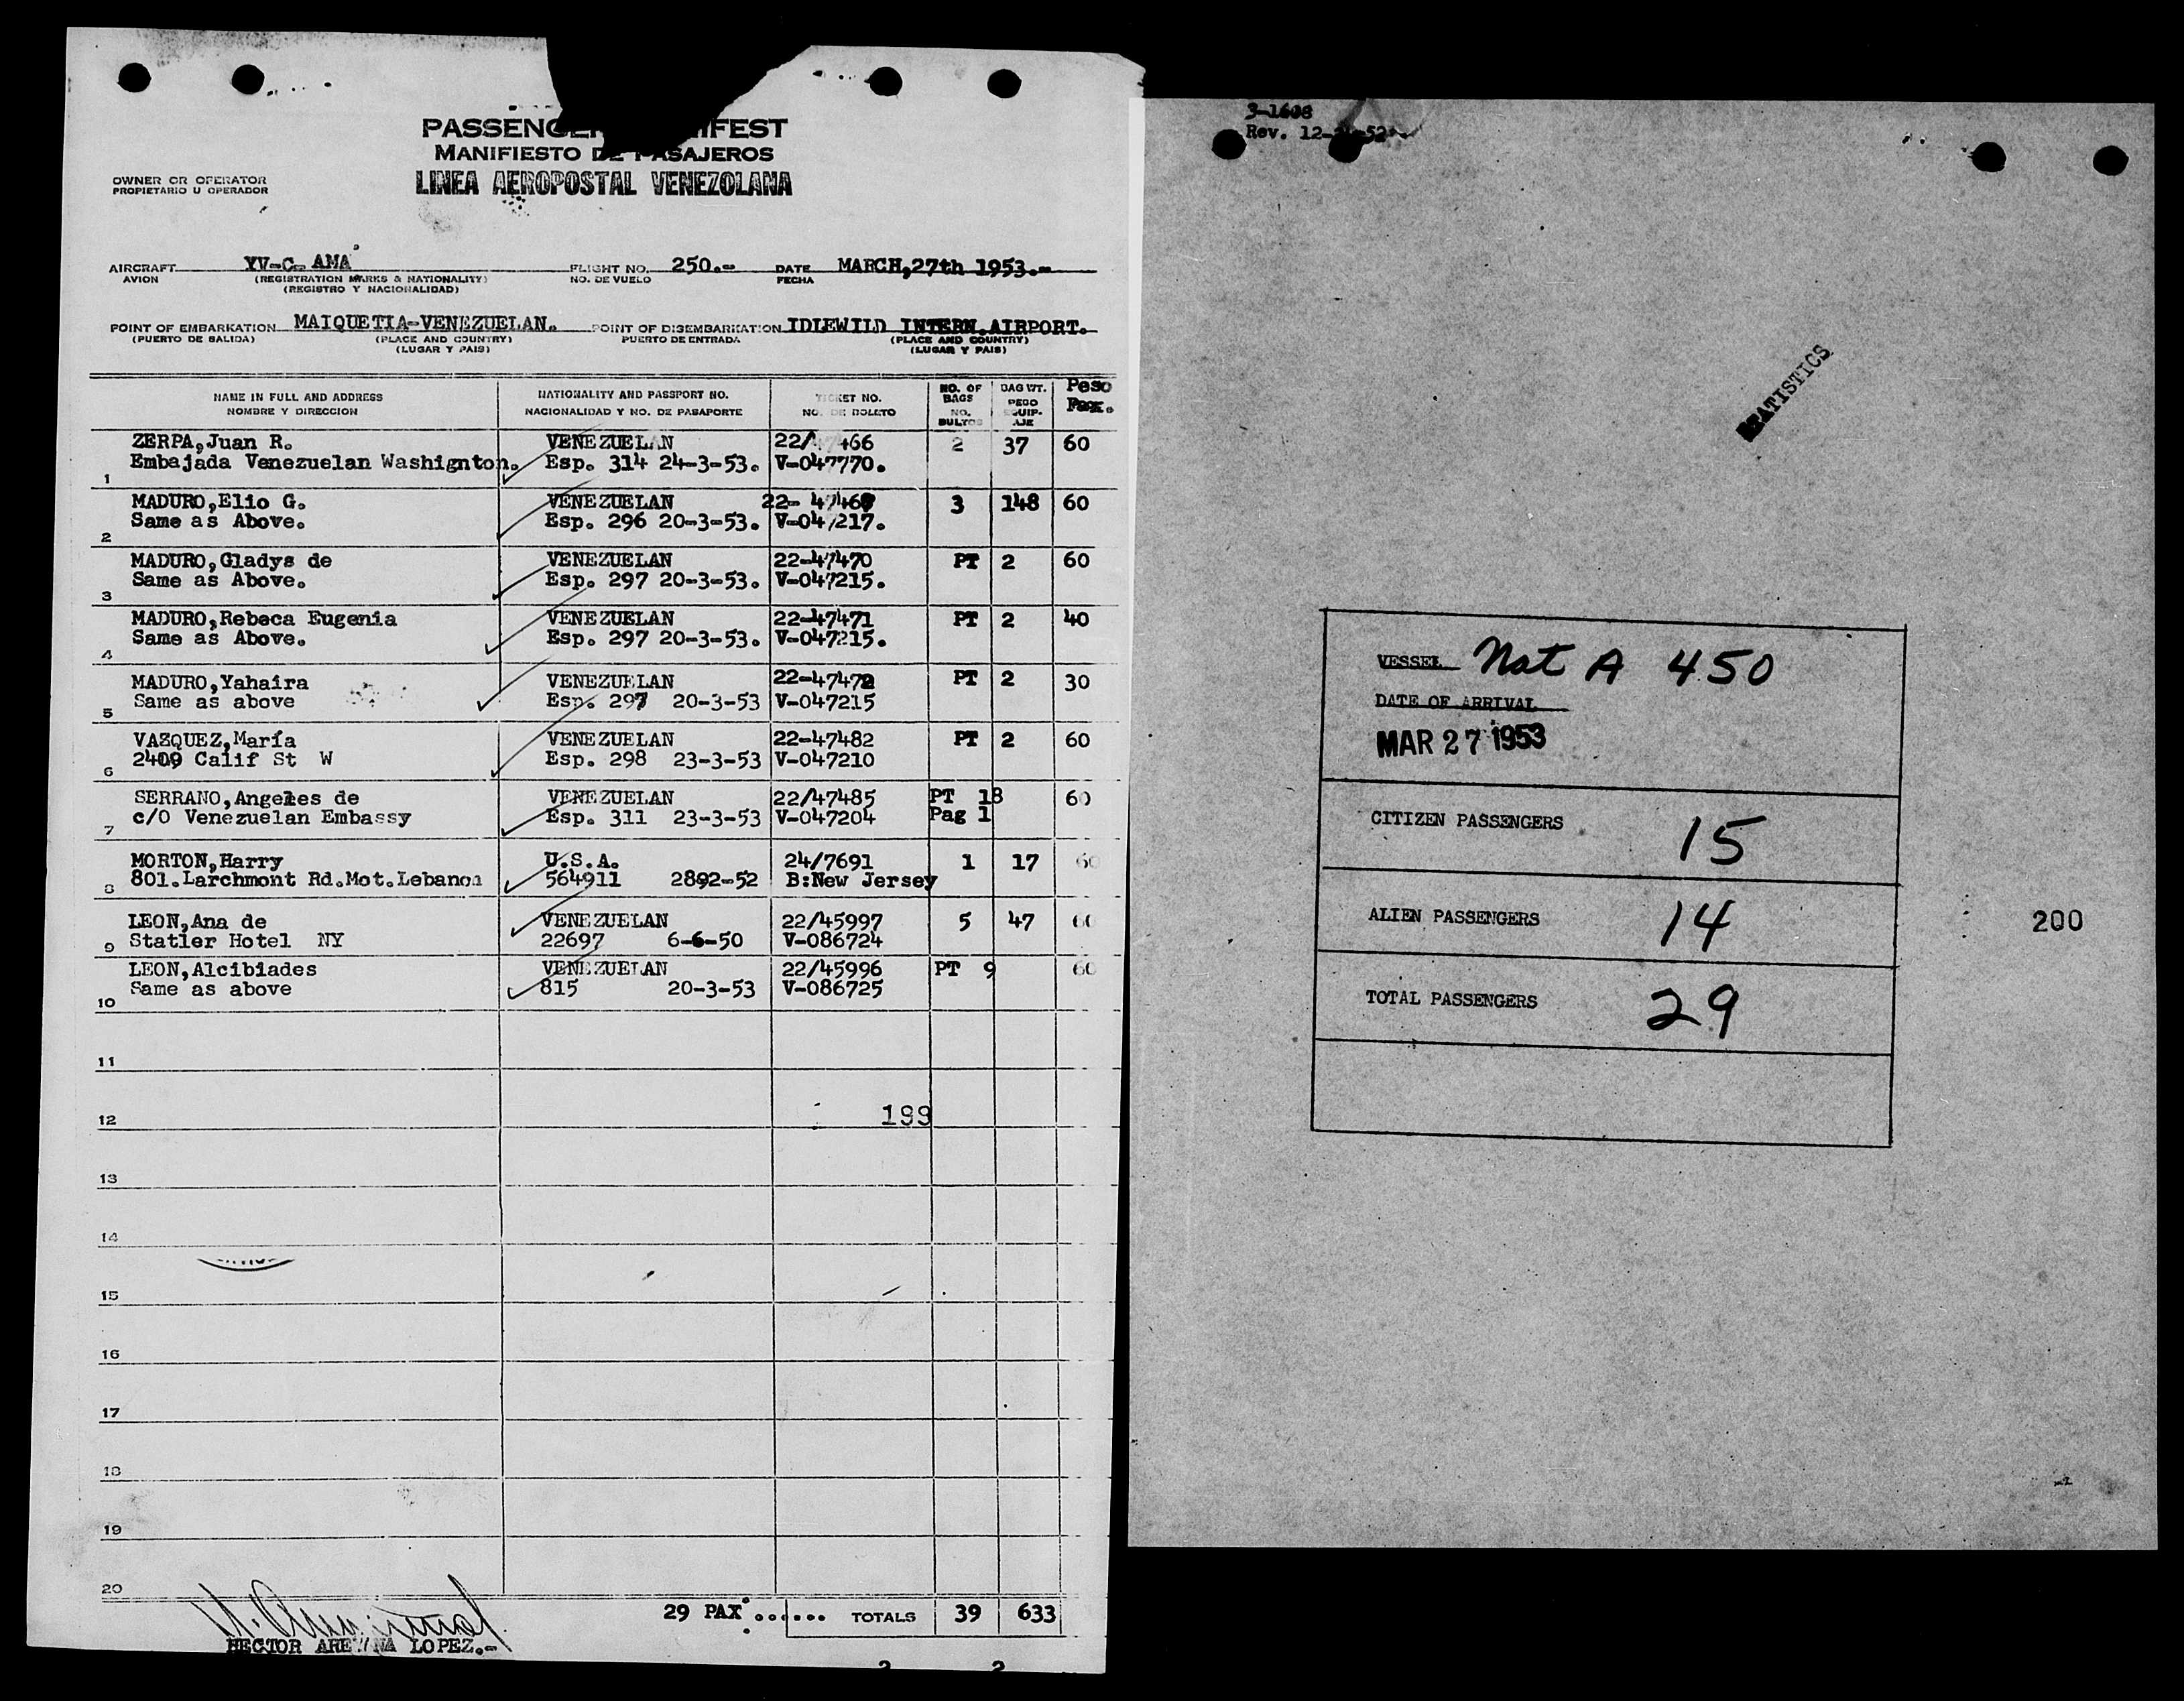 PASSENGER MANIFEST
MANIFIESTO DE PASAJEROS
OWNER OR OPERATOR
PROPIETARIO U OPERADOR
LINEA AEROPOSTAL VENEZOLANA
AIRCRAFT YV-C- AMA FLIGHT NO. 250.- DATE MARCH,27th 1953.-
AVION (REGISTRATION MARKS & NATIONALITY) NO. DE VUELO FECHA
(REGISTRO Y NACIONALIDAD)
POINT OF EMBARKATION MAIQUETIA-VENEZUELAN. POINT OF DISEMBARKATION IDLEWILD INTERN.AIRPORT.
(PUERTO DE SALIDA) (PLACE AND COUNTRY) PUERTO DE ENTRADA (PLACE AND COUNTRY)
(LUGAR Y PAIS) (LUGAR Y PAIS)
NAME IN FULL AND ADDRESS NATIONALITY AND PASSPORT NO. TICKET NO. NO. OF BAGS BAG WT. Peso
NOMBRE Y DIRECCION NACIONALIDAD Y NO. DE PASAPORTE NO. DE BOLETO NO. BULTOS PESO EQUIPAJE Pax.
ZERPA,Juan R. VENEZUELAN 466 2 37 60
1 Embajada Venezuelan Washignton. Esp. 314 24-3-53. V-047770.
MADURO,Elio G. VENEZUELAN 22- 3 148 60
2 Same as Above. Esp. 296 20-3-53. V-047217.
MADURO,Gladys de VENEZUELAN 22-47470 PT 2 60
3 Same as Above. Esp. 297 20-3-53. V-047215.
MADURO,Rebeca Eugenia VENEZUELAN 22-47471 PT 2 40
4 Same as Above. Esp. 297 20-3-53. V-047215.
MADURO,Yahaira VENEZUELAN 22-47472 PT 2 30
5 Same as above Esp. 297 20-3-53 V-047215
VAZQUEZ,María VENEZUELAN 22-47482 PT 2 60
6 2409 Calif St W Esp. 298 23-3-53 V-047210
SERRANO,Angeles de VENEZUELAN 22/47485 PT 18 60
7 c/O Venezuelan Embassy Esp. 311 23-3-53 V-047204 Pag 1
MORTON,Harry U.S.A. 24/7691 1 17 60
8 801.Larchmont Rd.Mot.Lebanon 564911 2892-52 B:New Jersey
LEON,Ana de VENEZUELAN 22/45997 5 47 60
9 Statler Hotel NY 22697 6-6-50 V-086724
LEON,Alcibiades VENEZUELAN 22/45996 PT 9 60
10 Same as above 815 20-3-53 V-086725
11
12 199
13
14
15
16
17
18
19
20
29 PAX ...... TOTALS 39 633
HECTOR LOPEZ.-
3-1608
Rev. 12- -52
STATISTICS
VESSEL Nat A 450
DATE OF ARRIVAL
MAR 27 1953
CITIZEN PASSENGERS 15
ALIEN PASSENGERS 14
200
TOTAL PASSENGERS 29